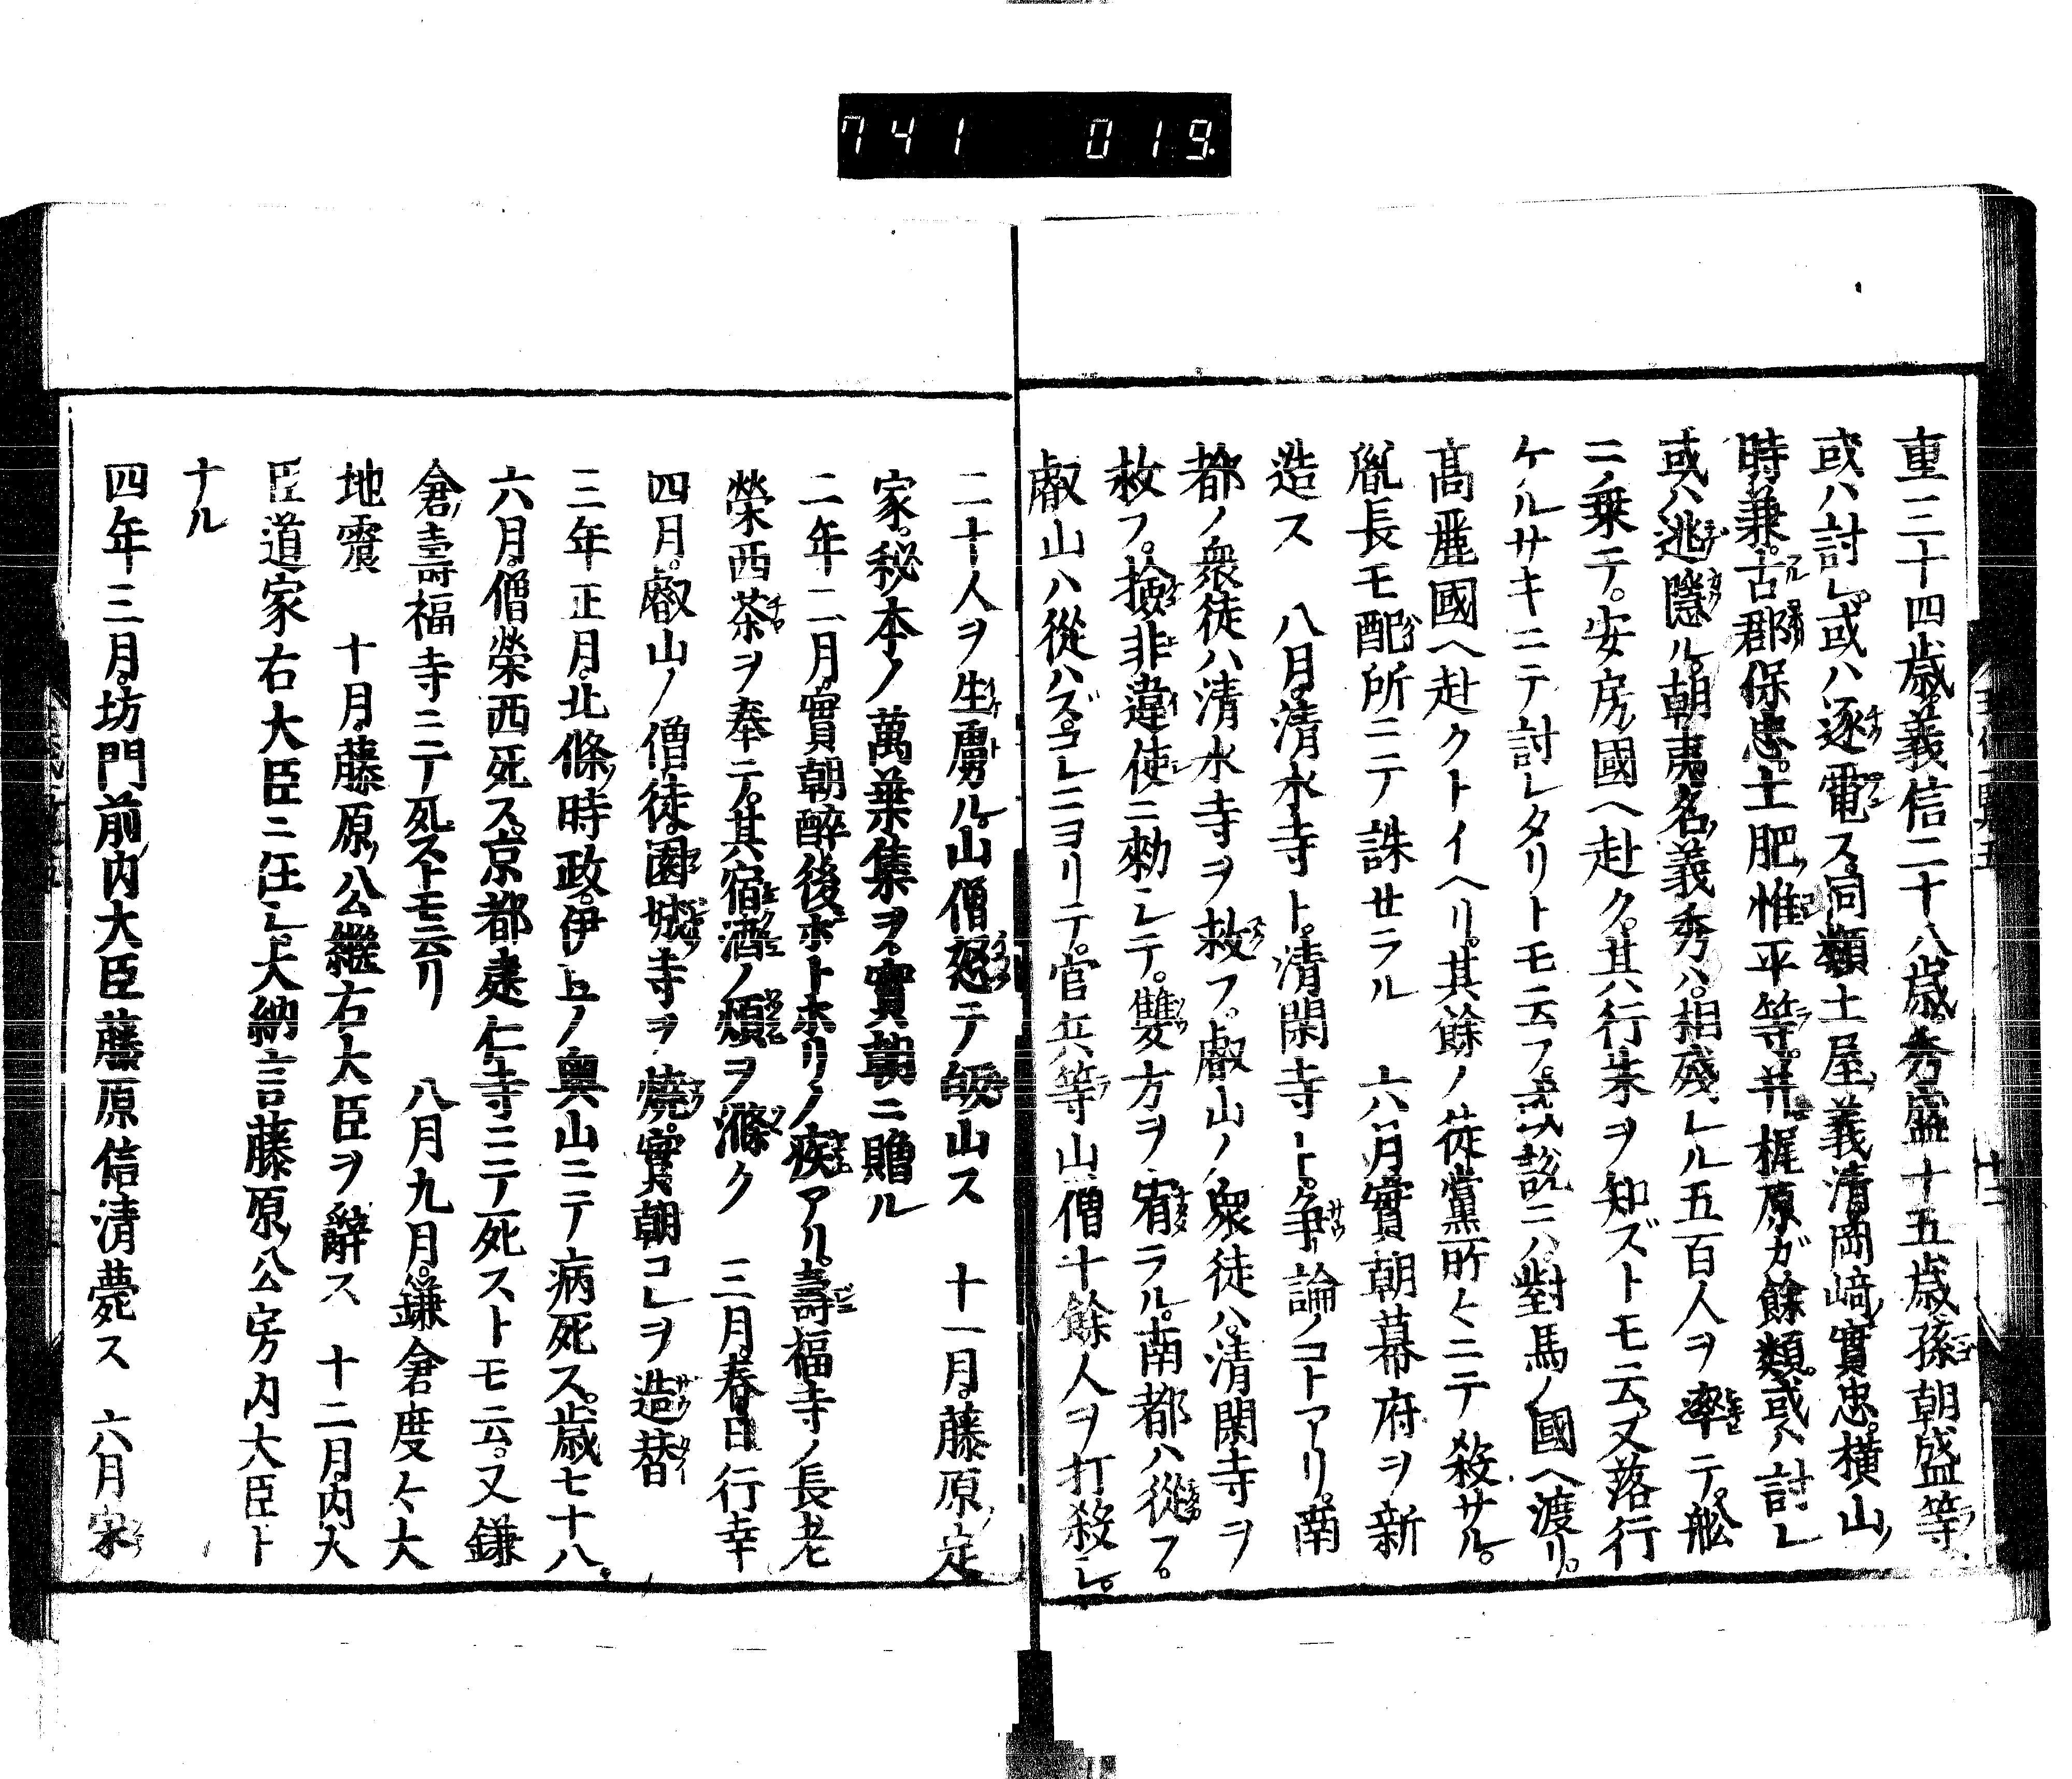 741 019
重三十四歳。義信二十八歳。秀盛十五歳孫朝盛等
或ハ討レ。或ハ逐電ス。同類土屋義清岡﨑實忠。横山
時兼。古郡保忠。土肥惟平等。并梶原ガ餘類。或ハ討レ
或ハ逃隱ル。朝夷名義秀ハ。相殘レル五百人ヲ率テ。舩
ニノ乗テ。安房國ヘ赴ク。其行末ヲ知ズトモ云。又落行
ケルサキニテ討レタリトモ云フ。或説ニハ對馬ノ國ヘ渡リ。
髙麗國ヘ赴クトイヘリ。其餘ノ徒黨所々ニテ殺サル。
胤長モ配所ニテ誅セラル　六月實朝幕府ヲ新
造ス　八月。清水寺ト。清閑寺ト。争論ノコトアリ。南
都ノ衆徒ハ清水寺ヲ救フ。叡山ノ衆徒ハ。清閑寺ヲ
救フ。撿非違使ニ勅シテ。雙方ヲ宥ラル。南都ハ從フ。
叡山ハ從ハズ。コレニヨリテ。官兵等山僧十餘人ヲ打殺シ。
二十人ヲ生虜ル。山僧怒テ皈山ス　十一月。藤原定
家。秘本ノ萬葉集ヲ。實朝ニ贈ル
二年二月。實朝醉後ホトホリノ疾アリ。壽福寺ノ長老
榮西茶ヲ奉テ。其宿酒ノ煩ヲ滌ク　三月。春日行幸
四月。叡山ノ僧徒。園城寺ヲ燒。實朝コレヲ造替
三年正月。北條時政。伊豆ノ奥山ニテ病死ス。歳七十八。
六月。僧榮西死ス。京都建仁寺ニテ死ストモ云。又鎌
倉壽福寺ニテ死ストモ云リ　八月九月。鎌倉度々大
地震　十月。藤原公繼右大臣ヲ辭ス　十二月。内大
臣道家右大臣ニ任シ。大納言藤原公房内大臣ト
ナル
四年三月。坊門前内大臣藤原信清薨ス　六月宋